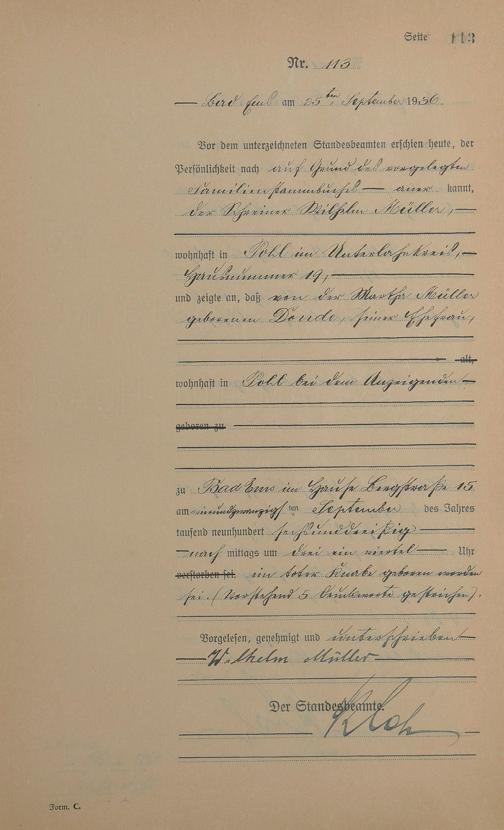 Seite 113
Nr. 113
Bad Ems am 25ten September 1936.
Vor dem unterzeichneten Standesbeamten erschien heute, der
Persönlichkeit nach auf Grund des vorgelegten
Familienstammbuches — aner kannt,
der Schreiner Wilhelm Müller, —
wohnhaft in Pohl im Unterlahnkreis, —
Hausnummer 19, —
und zeigte an, daß von der Martha Müller
geborenen, seiner Ehefrau,
alt,
wohnhaft in Pohl bei dem Anzeigenden —
geboren zu
zu Bad Ems im Hause Bergstraße 15
am ten September des Jahres
tausend neunhundert sechsunddreißig —
— nach mittags um drei ein viertel — Uhr
verstorben sei. ein toter Knabe geboren worden
sei. (Vorstehend 5 Druckworte gestrichen).
Vorgelesen, genehmigt und unterschrieben
— Wilhelm Müller —
Der Standesbeamte.
Form. C.